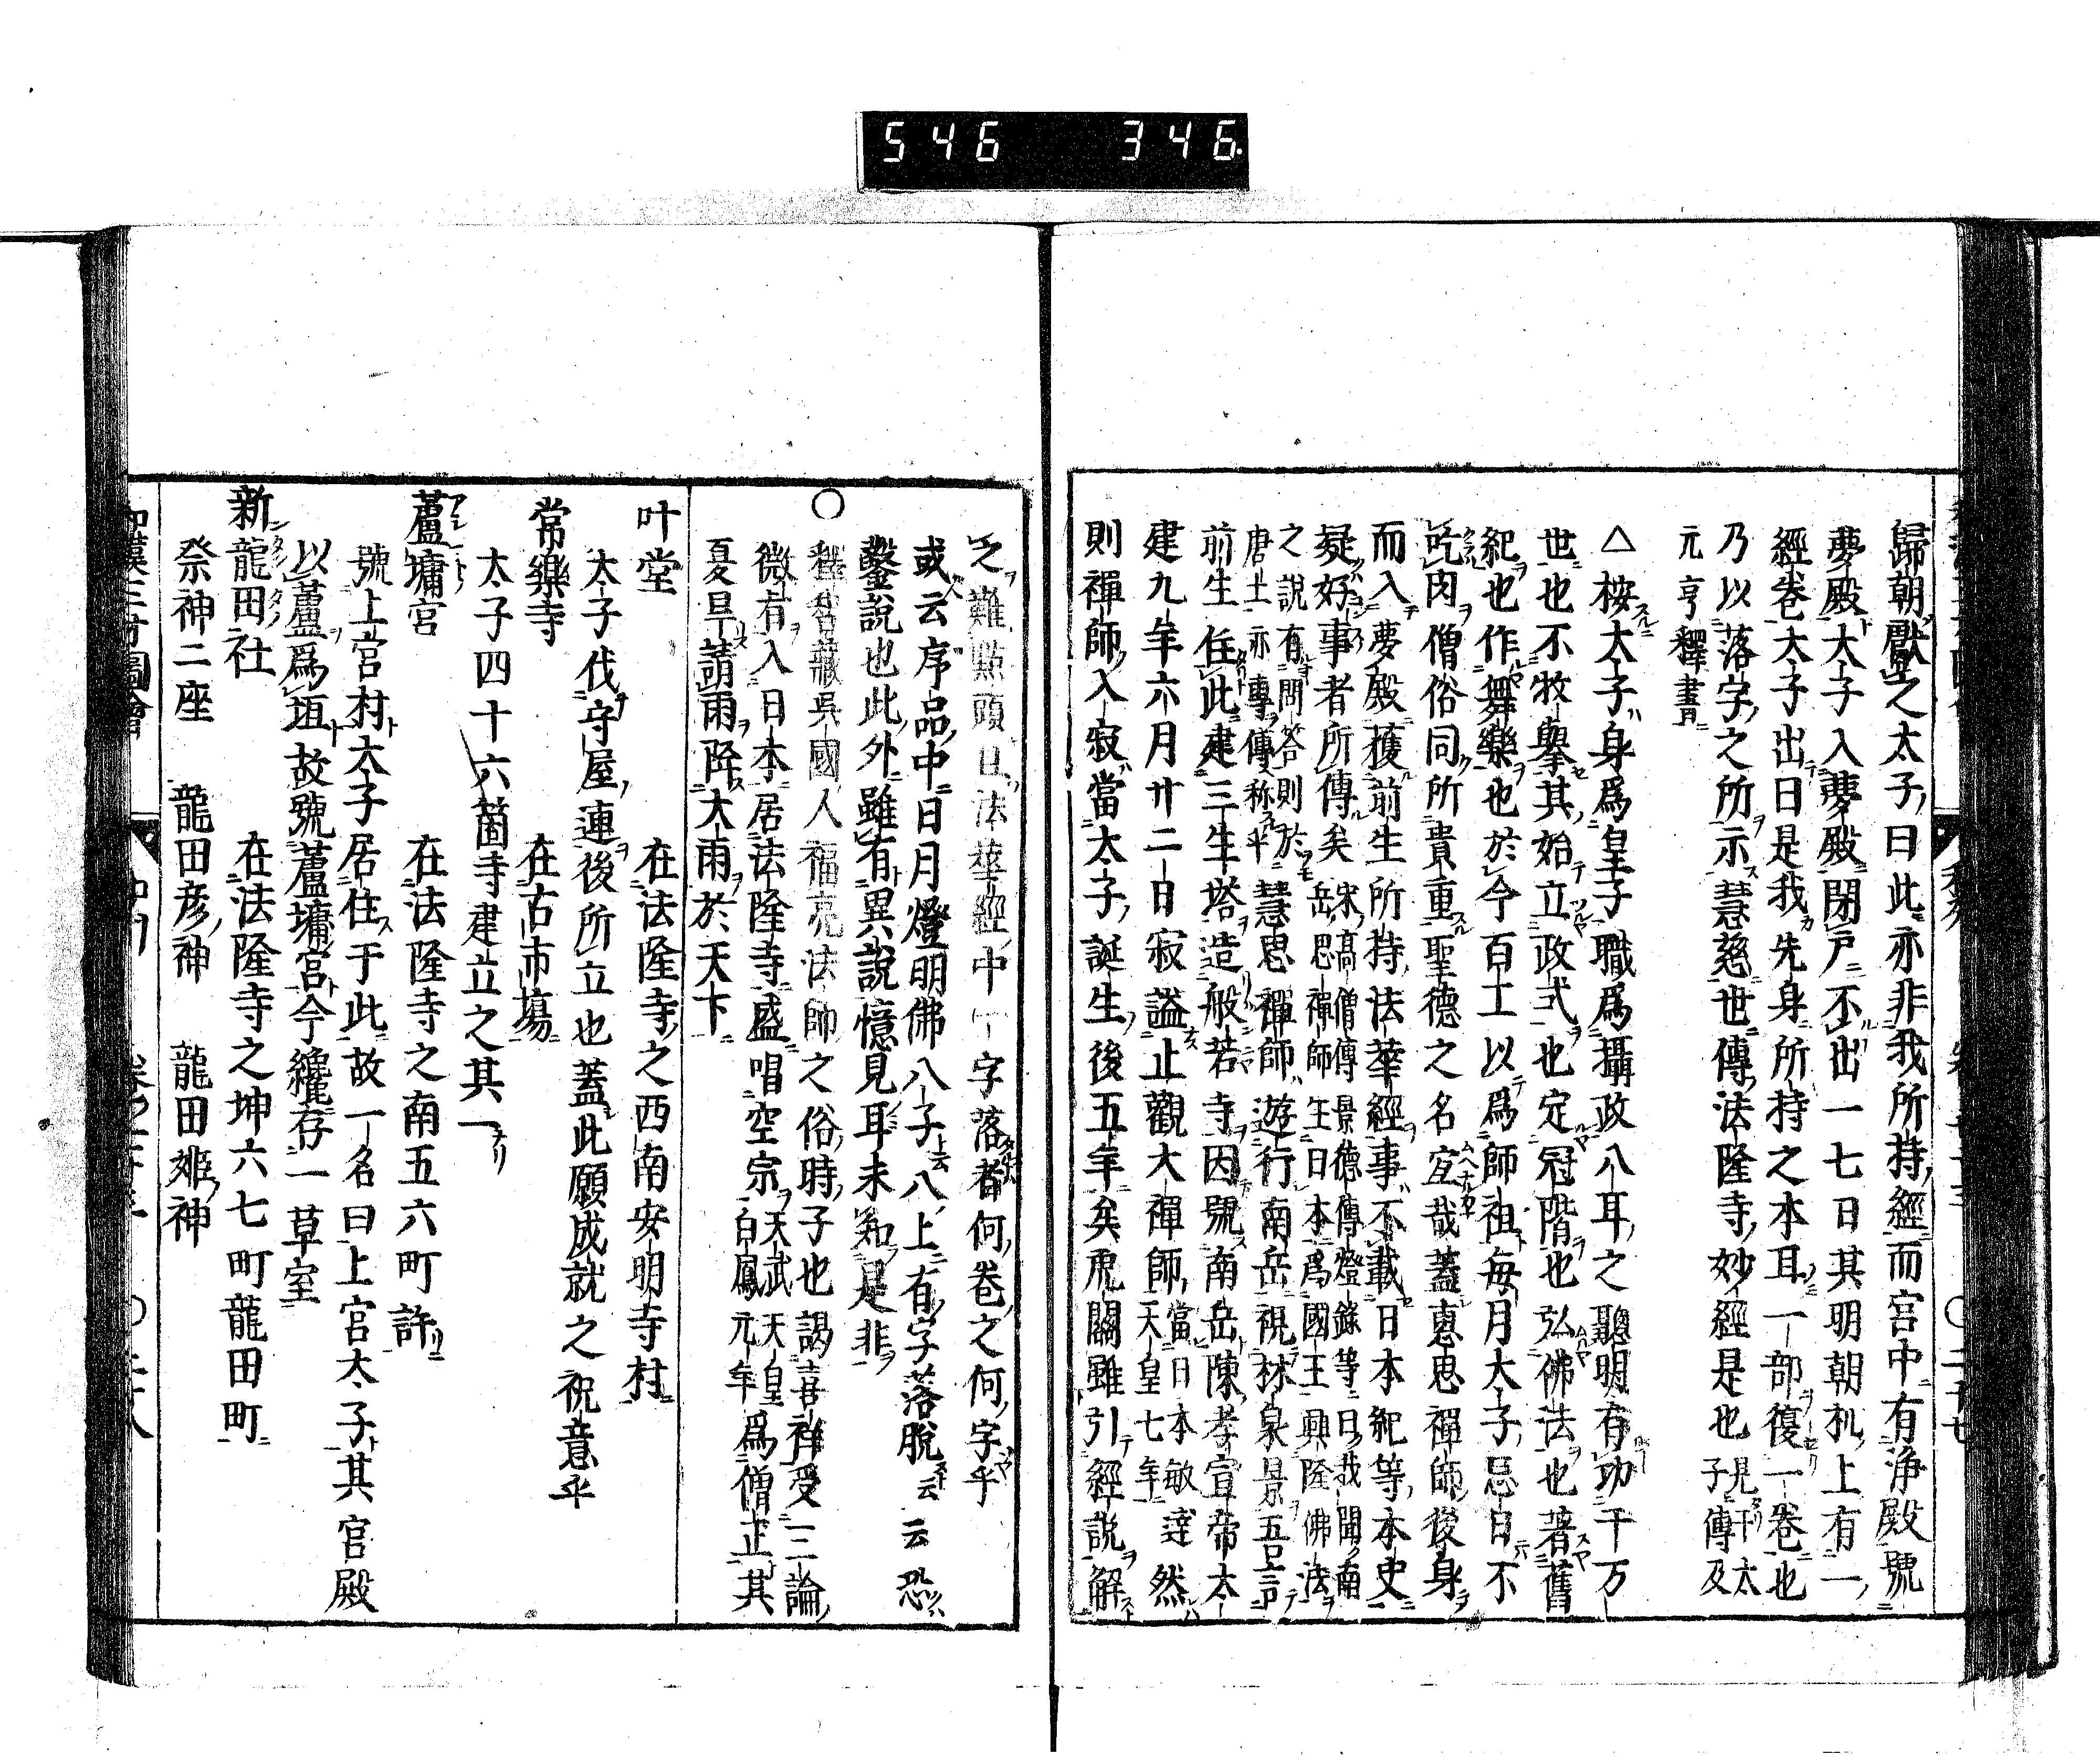 546 346
歸朝獻之太子曰此亦非我所持經而宮中有浄殿號
夢殿太子入夢殿閉戸不出一七日其明朝机上有一
經卷太子出曰是我先身所持之本耳一部復一卷也
乃以落字之所示慧慈世傳法隆寺妙經是也見于太子傳及
元亨釋書
△桉太子身爲皇子職爲攝政八耳之聰明有功于万
世也不牧擧其始立政式也定冠階也弘佛法也著舊
紀也作舞樂也於今百工以爲師祖每月太子忌日不
吃肉僧俗同所貴重聖德之名宜哉蓋惠思禪師後身
而入夢殿獲前生所持法華經事不載日本紀等本史
疑好事者所傳矣宋高僧傳景德傳燈錄等曰我聞南岳思禪師生日本爲國王興隆佛法
之說有問答則於唐土亦專傳称乎慧思禪師遊行南岳視林泉景吾言
前生住此建三生塔造般若寺因號南岳陳孝宣帝太
建九年六月廿二日寂謚止觀大禪師當日本敏達天皇七年然
則禪師入寂當太子誕生後五年矣虎關雖引經説解
之難點頭且法華經中一字落者何卷之何字乎
或云序品中日月燈明佛八子云八上有字落脫云云恐
鑿説也此外雖有異説憶見耳未知是非
○釋智藏吳國人福亮法師之俗時子也謁喜祥受三論
微有入日本居法隆寺盛唱空宗天武天皇白鳳元年爲僧正其
夏旱請雨降大雨於天下
叶堂 在法隆寺之西南安明寺村
太子伐守屋連後所立也蓋此願成就之祝意乎
常樂寺 在古市場
太子四十六箇寺建立之其一
蘆墻宮 在法隆寺之南五六町許
號上宮村太子居住于此故一名曰上宮太子其宮殿
以蘆爲垣故號蘆墻宮今纔存一草室
新龍田社 在法隆寺之坤六七町龍田町
祭神二座 龍田彦神 龍田姫神